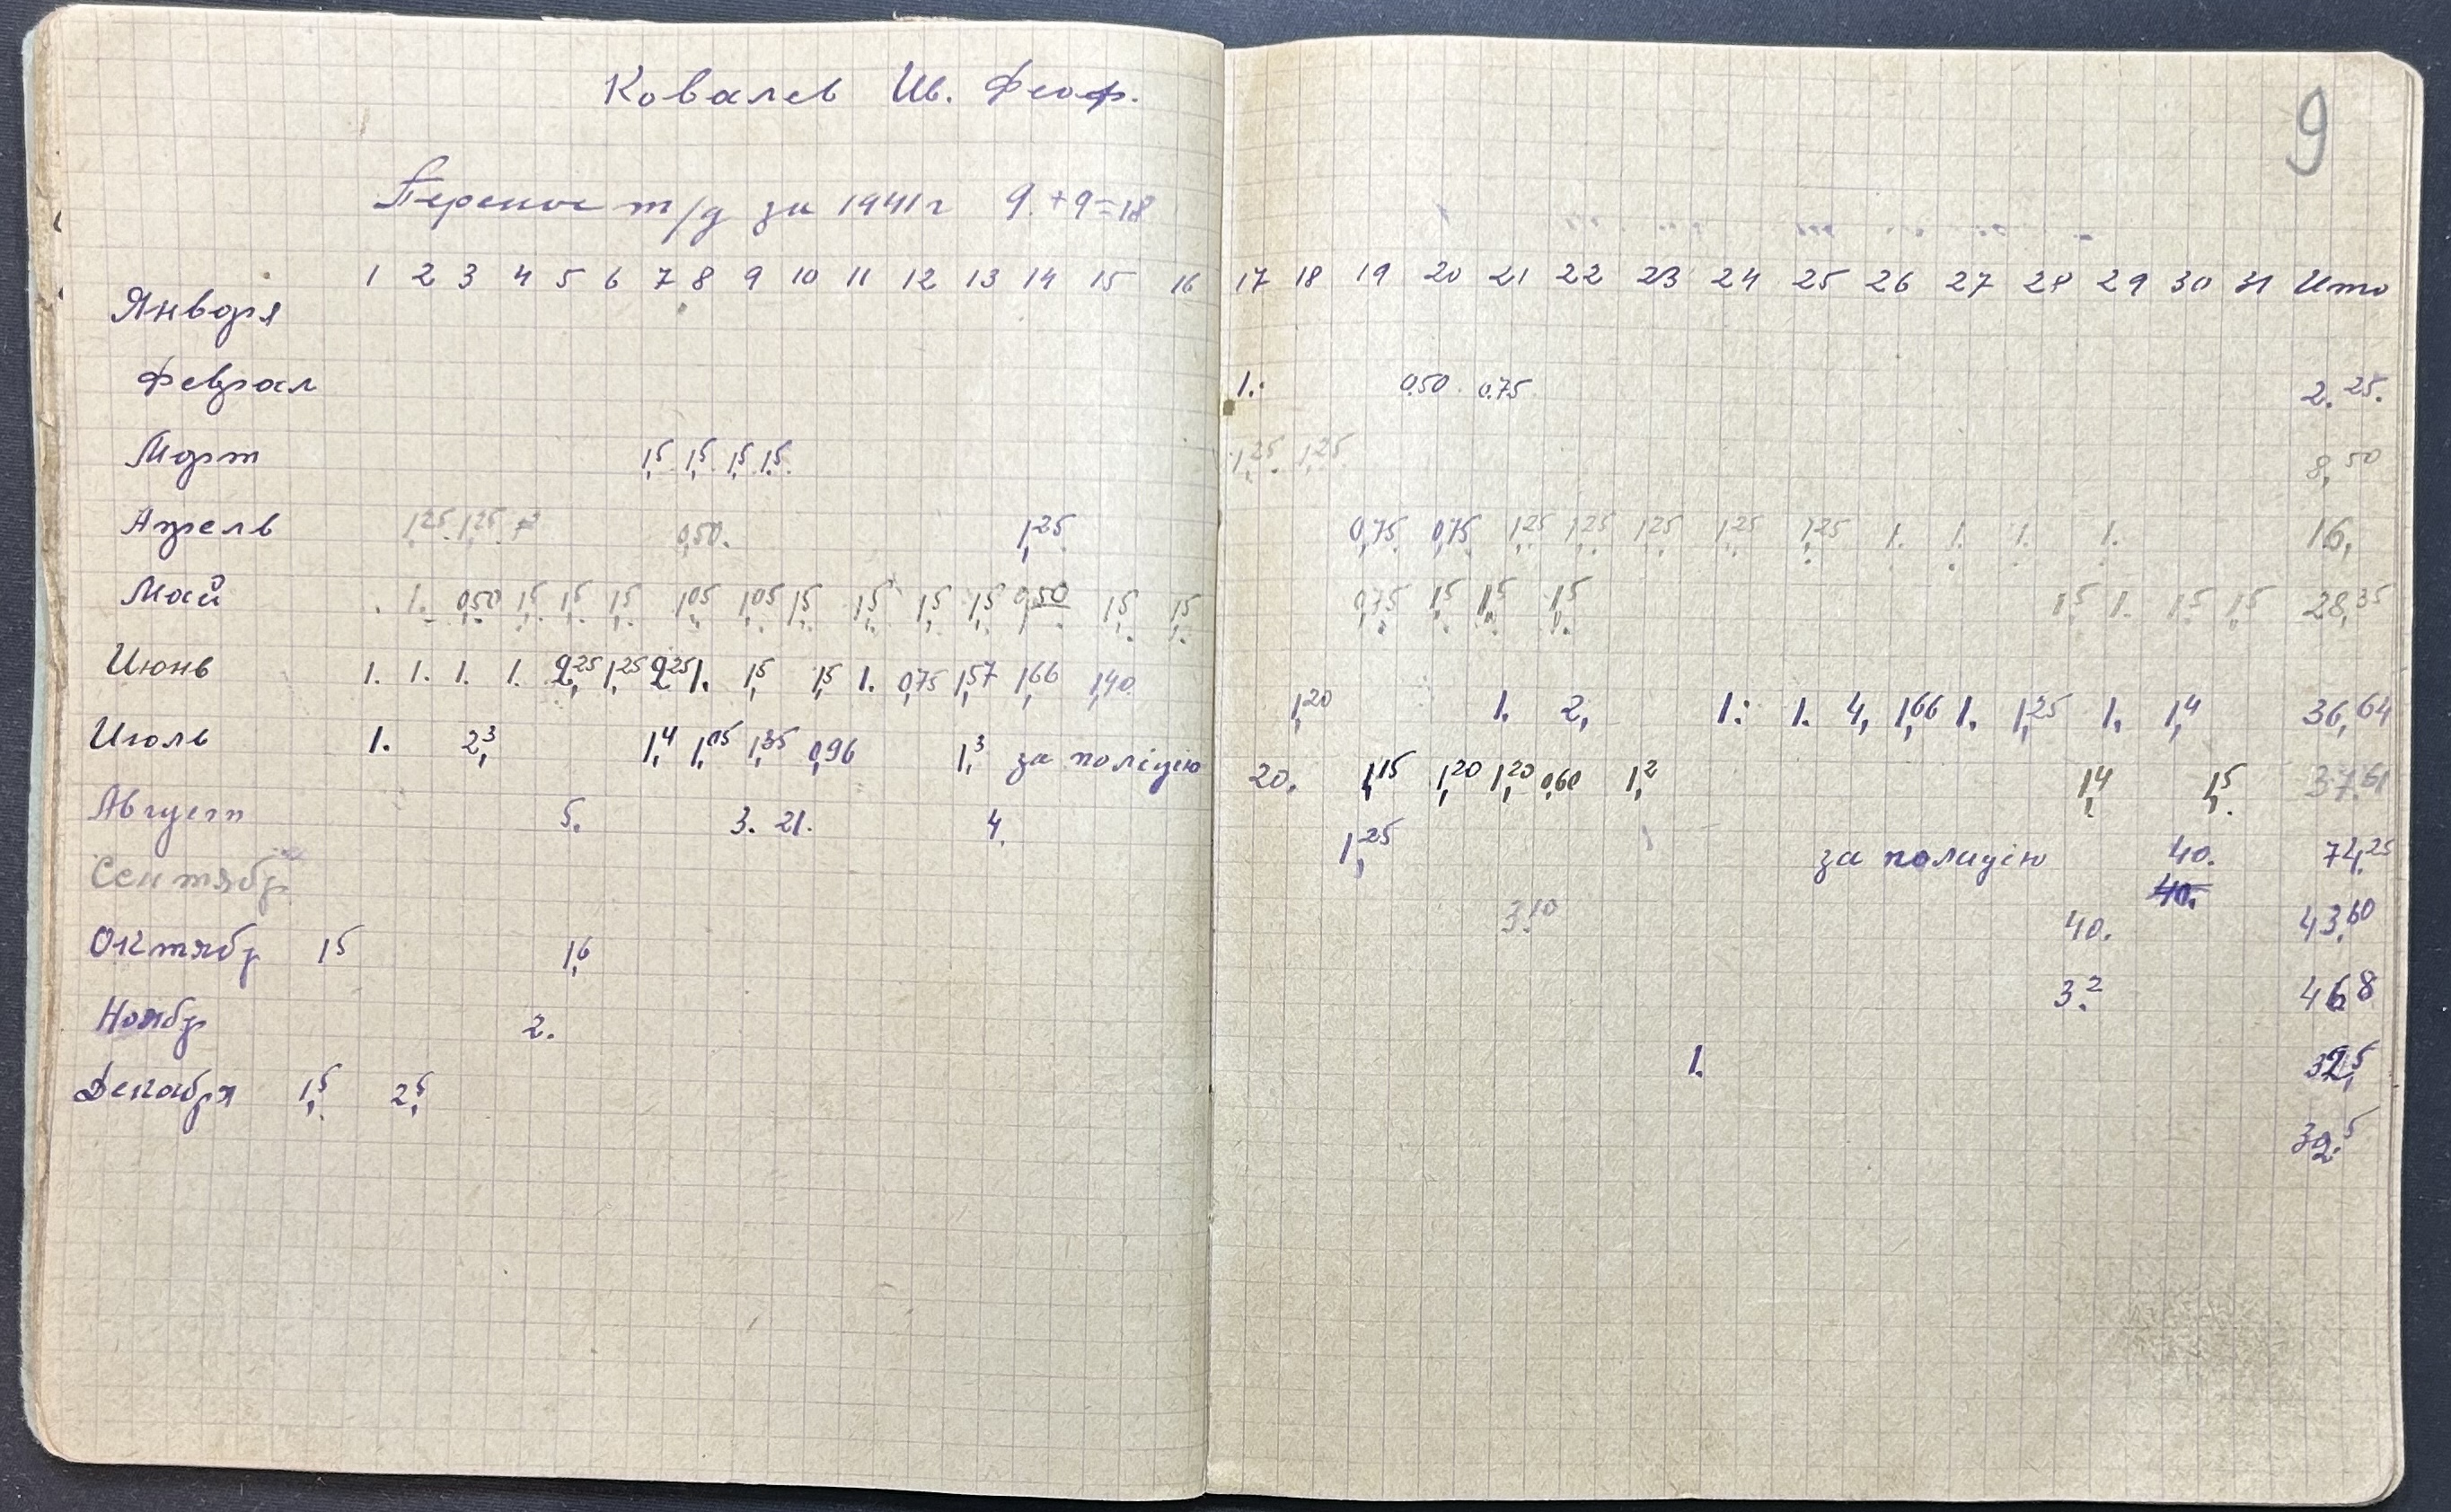 Ковалев Ив. Феоф.
9
Перенос т/д за 1941 г 9. + 9 = 18
1 2 3 4 5 6 7 8 9 10 11 12 13 14 15 16 17 18 19 20 21 22 23 24 25 26 27 28 29 30 31 Ито
Января
Феврал 1. 0,50 0,75 2.25.
Март 1,5 1,5 1,5 1,5 1,25 1,25 8,50
Апрель 1,25 1,25 0,50. 1,25 0,75 0,75 1,25 1,25 1,25 1,25 1,25 1. 1. 1. 1. 16,
Май 1. 0,50 1,5 1,5 1,5 1,05 1,05 1,5 1,5 1,5 1,5 0,50 1,5 1,5 0,75 1,5 1,5 1,5 1,5 1. 1,5 1,5 28,35
Июнь 1. 1. 1. 1. 2,25 1,25 2,25 1. 1,5 1,5 1. 0,75 1,57 1,66 1,40 1,20 1. 2, 1. 1. 4, 1,66 1. 1,25 1. 1,4 36,64
Июль 1. 2,3 1,4 1,05 1,35 0,96 1,3 за поліцію 20. 1,15 1,20 1,20 0,60 1,2 1,4 1,5 37,61
Август 5. 3. 21. 4. 1,25 за полицію 40. 74,25
Сентябр 40. 3.10 40. 43,60
Октябр 15 1,6 3.2 46,8
Ноябр 2. 1. 32,5
Декабря 1,5 2,5 39.5